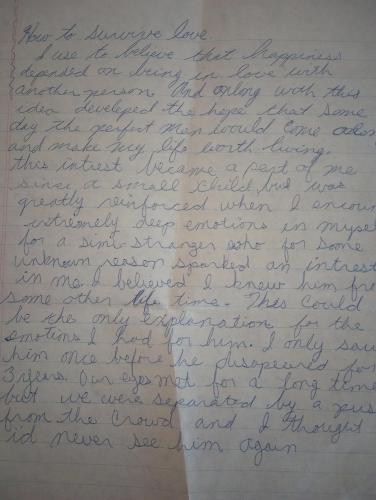 How to survive love.
I use to believe that happiness
depended on being in love with
another person. And along with this
idea developed the hope that some
day the perfect man would come
and make my life worth living.
this intrest became a part of me
since a small child but was
greatly reinforced when I encoun
extremely deep emotions in myself
for a simi-stranger who for some
unknown reason sparked an intrest
in me. I believed I knew him fro
some other life time. This could
be the only explanation for the
emotions I had for him. I only saw
him once before he disapeared for
3 years. Our eyes met for a long time
but we were separated by a pus
from the crowd and I thought
i'd never see him again